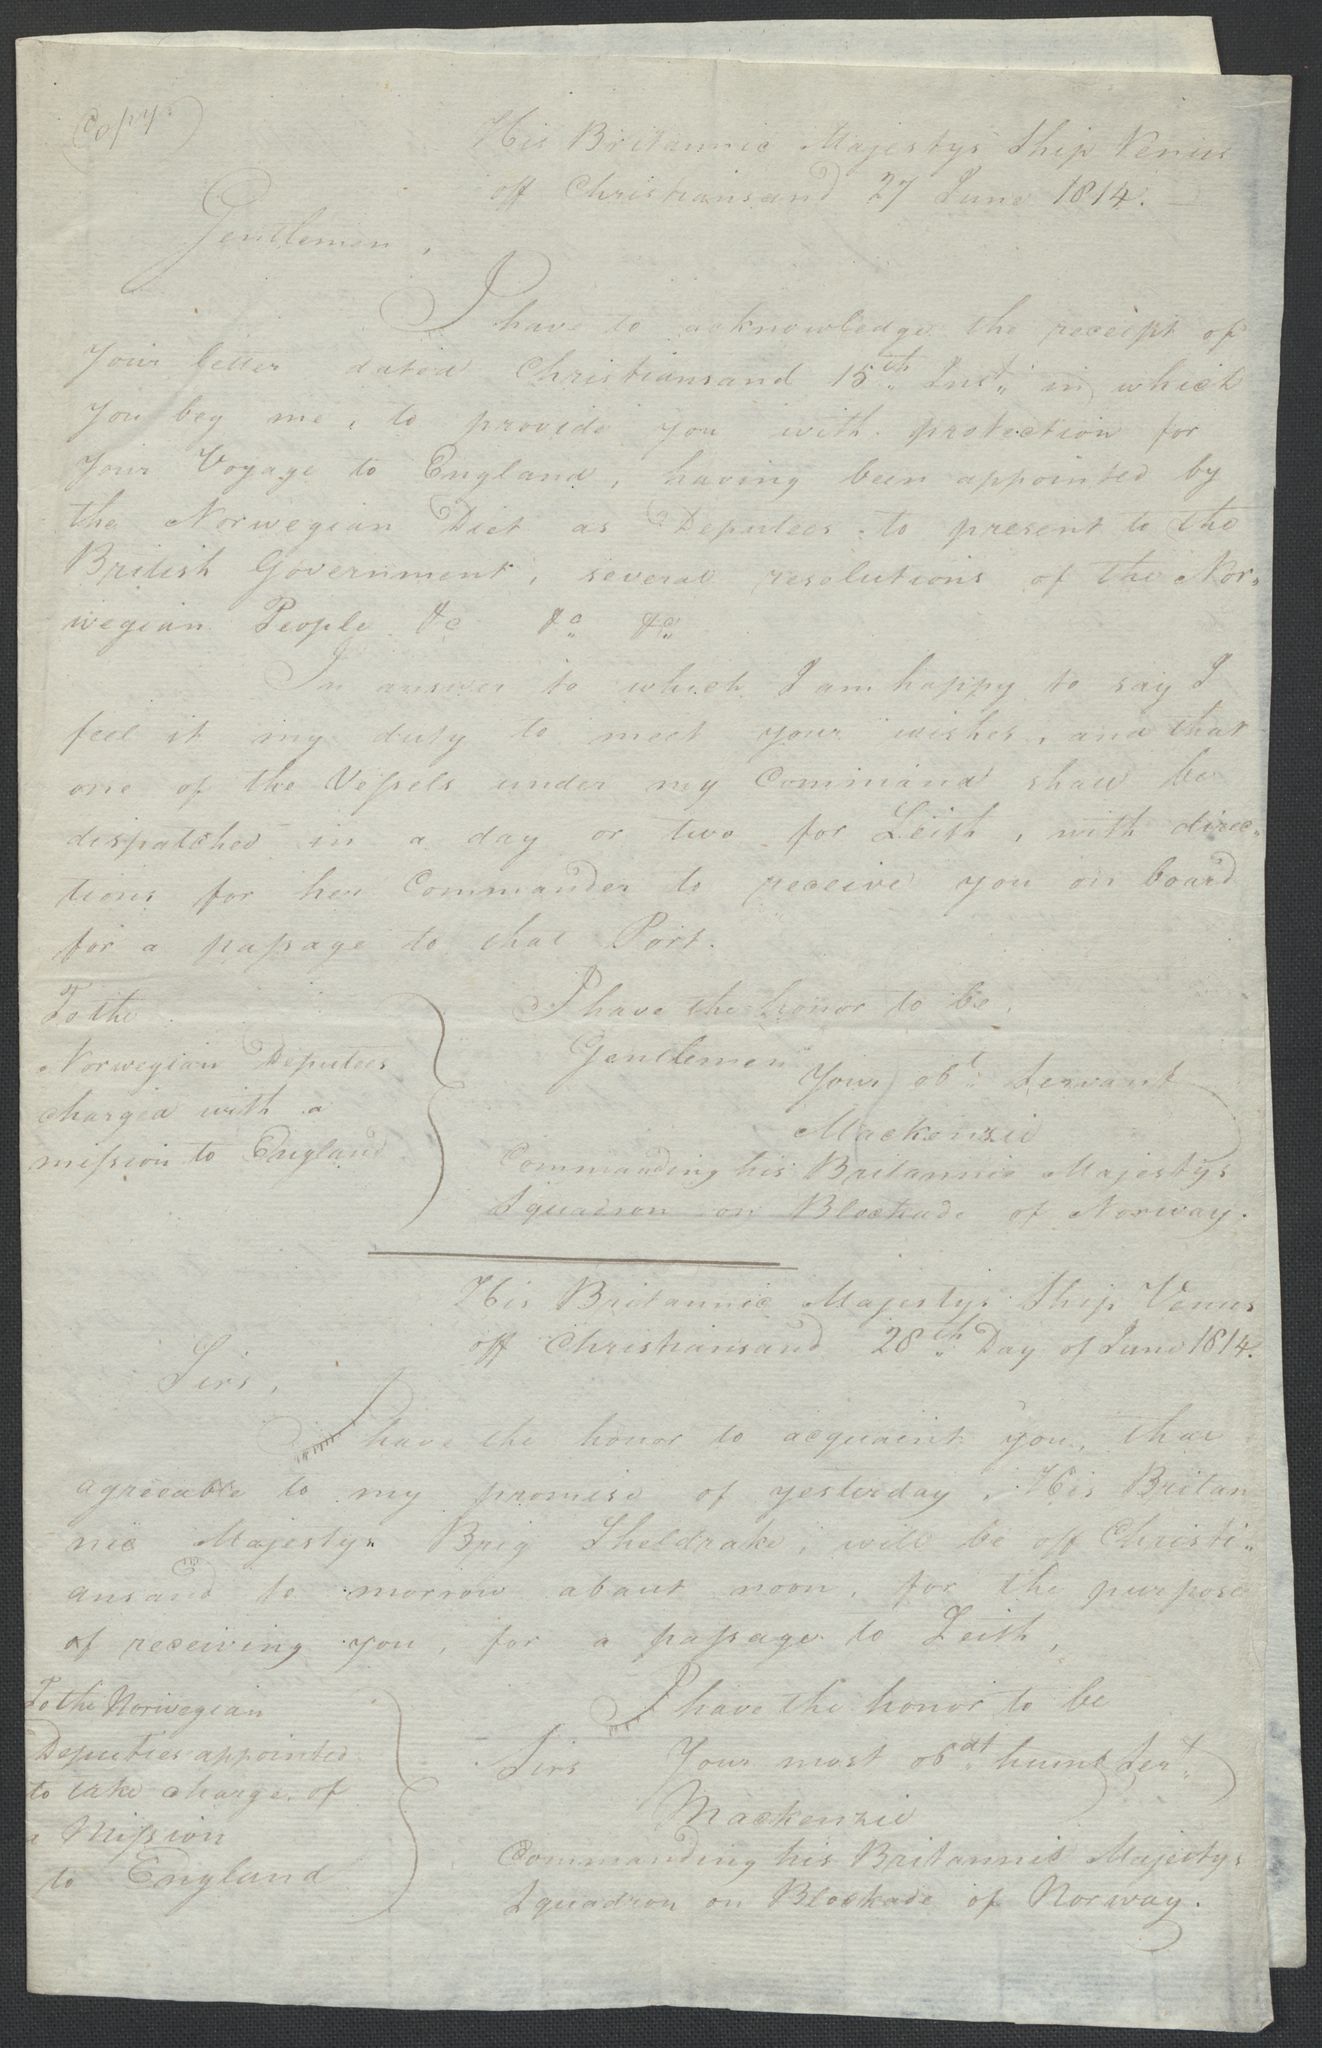 Copy.
His Britannic Majestys Ship Venus
off Christiansand 27 June 1814.
Gentlemen,
I have to acknowledge the receipt of
Your letter dated Christiansand 15th Inst. in which
you beg me, to provide you with protection for
Your Voyage to England, having been appointed by
the Norwegian Diet as Deputees to present to the
British Government, several resolutions of the Nor„
wegian People &c &c &c
In answer to which I am happy to say I
feel it my duty to meet your wishes, and that
one of the Vessels under my Command shall be
dispatched in a day or two for Leith, with direc„
tions for her Commander to receive you on board
for a passage to that Port.
I have the honor to be,
Gentlemen
Your obt. Servant
Mackenzie
Commanding his Britannic Majestys
Squadron on Blockade of Norway.
To the
Norwegian Deputees
charged with a
mission to England
His Britannic Majestys Ship Venus
off Christiansand 28th Day of June 1814.
Sirs,
I have the honor to acquaint you, that
agreeable to my promise of yesterday, His Britan
nic Majestys Brig Sheldrake, will be off Christi„
ansand to morrow about noon, for the purpose
of receiving you, for a passage to Leith,
I have the honor to be
Sirs Your most obdt humb Sert
Mackenzie
Commanding his Britannic Majestys
Squadron on Blockade of Norway.
To the Norwegian
Deputies appointed
to take charge of
a Mission
to England